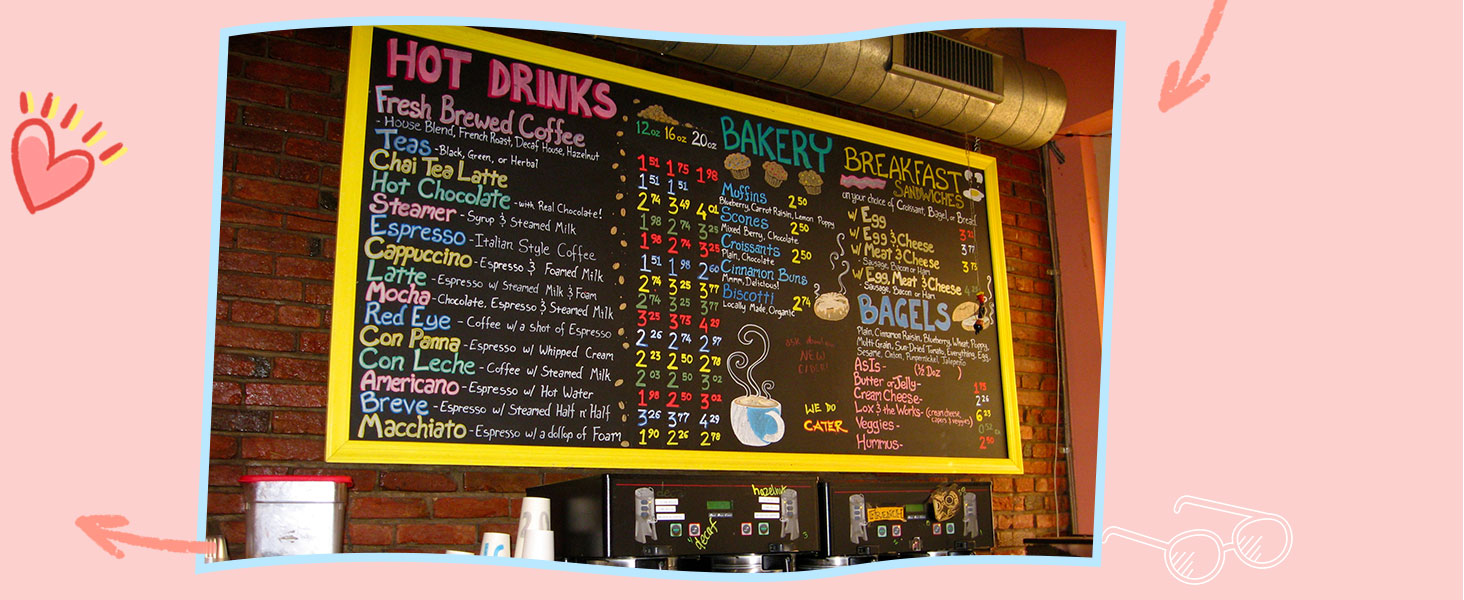 HOT DRINKS
Fresh Brewed Coffee
- House Blend, French Roast, Decaf House, Hazelnut
Teas - Black, Green, or Herbal
Chai Tea Latte
Hot Chocolate - with Real Chocolate!
Steamer - Syrup & Steamed Milk
Espresso - Italian Style Coffee
Cappuccino - Espresso & Foamed Milk
Latte - Espresso w/ Steamed Milk & Foam
Mocha - Chocolate, Espresso & Steamed Milk
Red Eye - Coffee w/ a shot of Espresso
Con Panna - Espresso w/ Whipped Cream
Con Leche - Coffee w/ Steamed Milk
Americano - Espresso w/ Hot Water
Breve - Espresso w/ Steamed Half n' Half
Macchiato - Espresso w/ a dollop of Foam
12oz 16oz 20oz
1 51 1 75 1 98
1 51 1 51
2 74 3 49 4 01
1 98 2 74 3 25
1 98 2 74 3 25
1 51 1 98 2 60
2 74 3 25 3 77
2 74 3 25 3 77
3 25 3 73 4 29
2 26 2 74 2 97
2 23 2 50 2 78
2 03 2 50 3 02
1 98 2 50 3 02
3 26 3 77 4 29
1 90 2 26 2 78
BAKERY
Muffins 2 50
Blueberry, Carrot Raisin, Lemon Poppy
Scones 2 50
Mixed Berry, Chocolate
Croissants 2 50
Plain, Chocolate
Cinnamon Buns
Mmm, Delicious!
Biscotti 2 74
Locally Made, Organic
NEW
CIDER!
WE DO
CATER
BREAKFAST
SANDWICHES
on your choice of Croissant, Bagel, or Bread
w/ Egg 3 25
w/ Egg & Cheese 3 77
w/ Meat & Cheese 3 73
- Sausage, Bacon or Ham
w/ Egg, Meat & Cheese 4 25
- Sausage, Bacon or Ham
BAGELS
Plain, Cinnamon Raisin, Blueberry, Wheat, Poppy,
Multi-Grain, Sun-Dried Tomato, Everything, Egg,
Sesame, Onion, Pumpernickel, Jalapeño
As Is - (½ Doz )
Butter or Jelly - 1 75
Cream Cheese - 2 26
Lox & the Works - (cream cheese, capers & veggies) 6 23
Veggies - 0 52
Hummus - 2 50
hazelnut
decaf
FRENCH
20